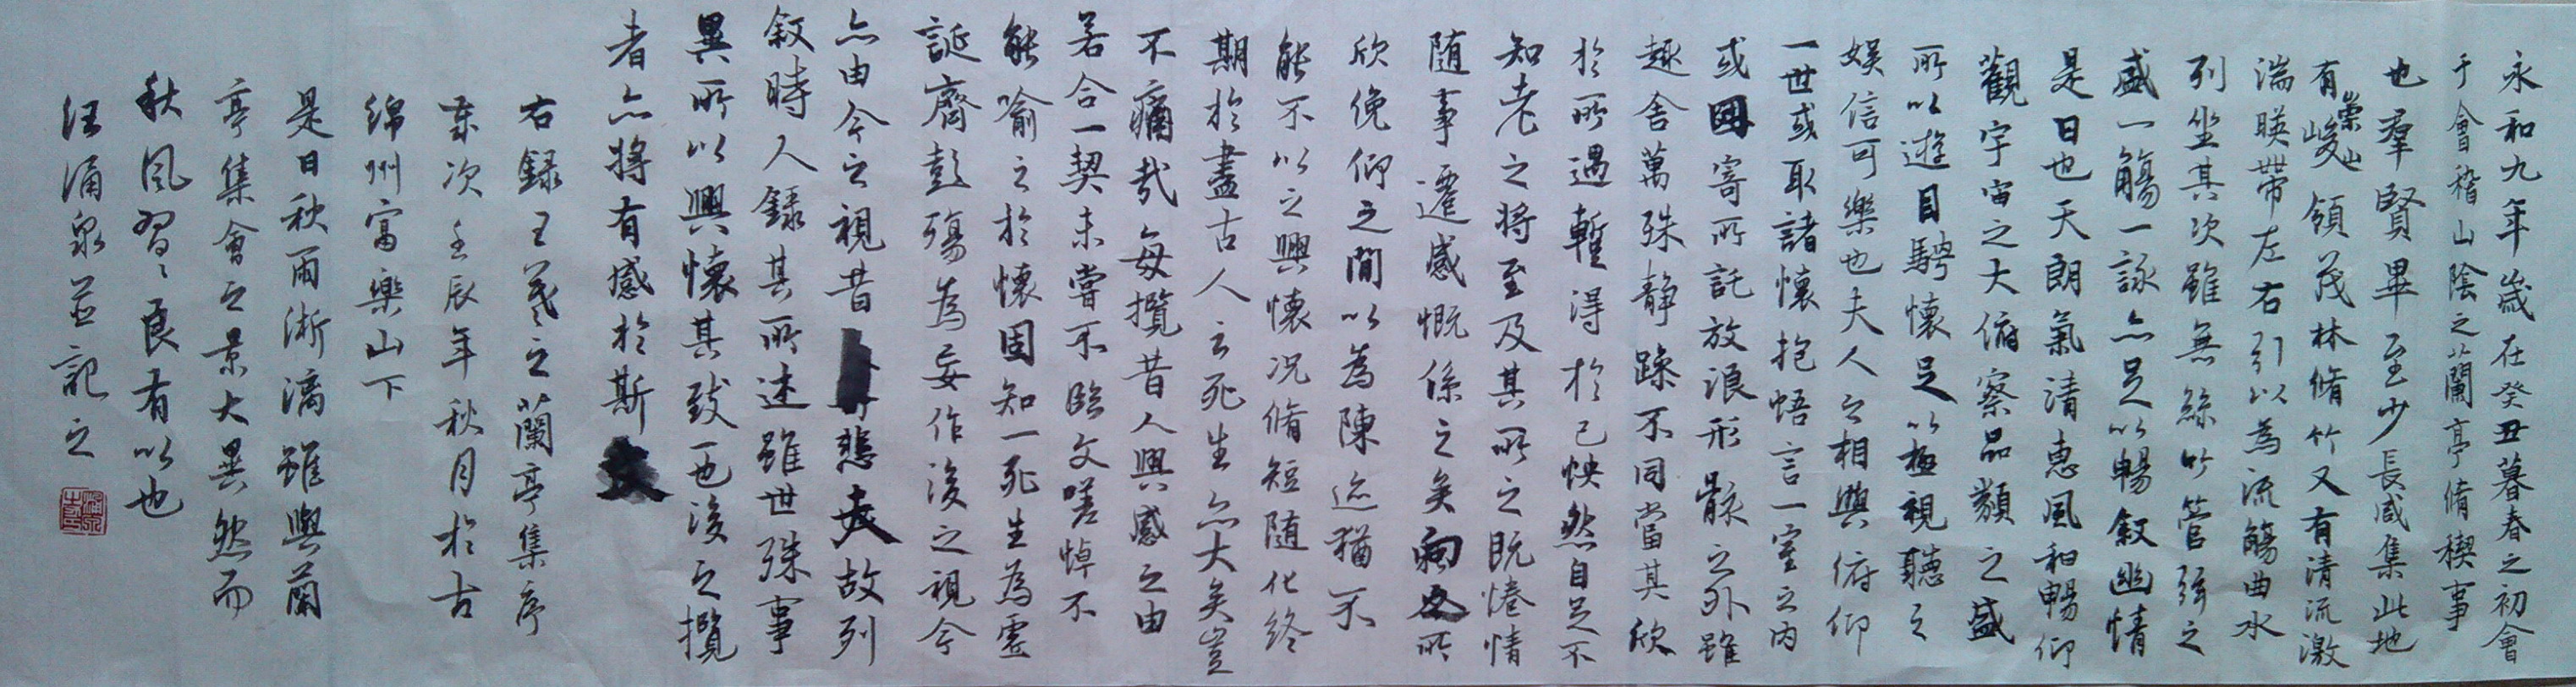 永和九年歲在癸丑暮春之初會
于會稽山陰之蘭亭脩稧事
也羣賢畢至少長咸集此地
有崇山峻領茂林脩竹又有清流激
湍暎帶左右引以為流觴曲水
列坐其次雖無絲竹管弦之
盛一觴一詠亦足以暢敘幽情
是日也天朗氣清惠風和暢仰
觀宇宙之大俯察品類之盛
所以遊目騁懷足以極視聽之
娛信可樂也夫人之相與俯仰
一世或取諸懷抱悟言一室之內
或因寄所託放浪形骸之外雖
趣舍萬殊静躁不同當其欣
於所遇蹔得於己怏然自足不
知老之將至及其所之既惓情
隨事遷感慨係之矣向之所
欣俛仰之間以為陳迹猶不
能不以之興懷況脩短隨化終
期於盡古人云死生亦大矣豈
不痛哉每攬昔人興感之由
若合一契未嘗不臨文嗟悼不
能喻之於懷固知一死生為虛
誕齊彭殤為妄作後之視今
亦由今之視昔悲夫故列
敘時人錄其所述雖世殊事
異所以興懷其致一也後之攬
者亦將有感於斯文
右錄王羲之蘭亭集序
東次壬辰年秋月於古
綿州富樂山下
是日秋雨淅漓雖與蘭
亭集會之景大異然而
秋風習習良有以也
汪涌泉並記之